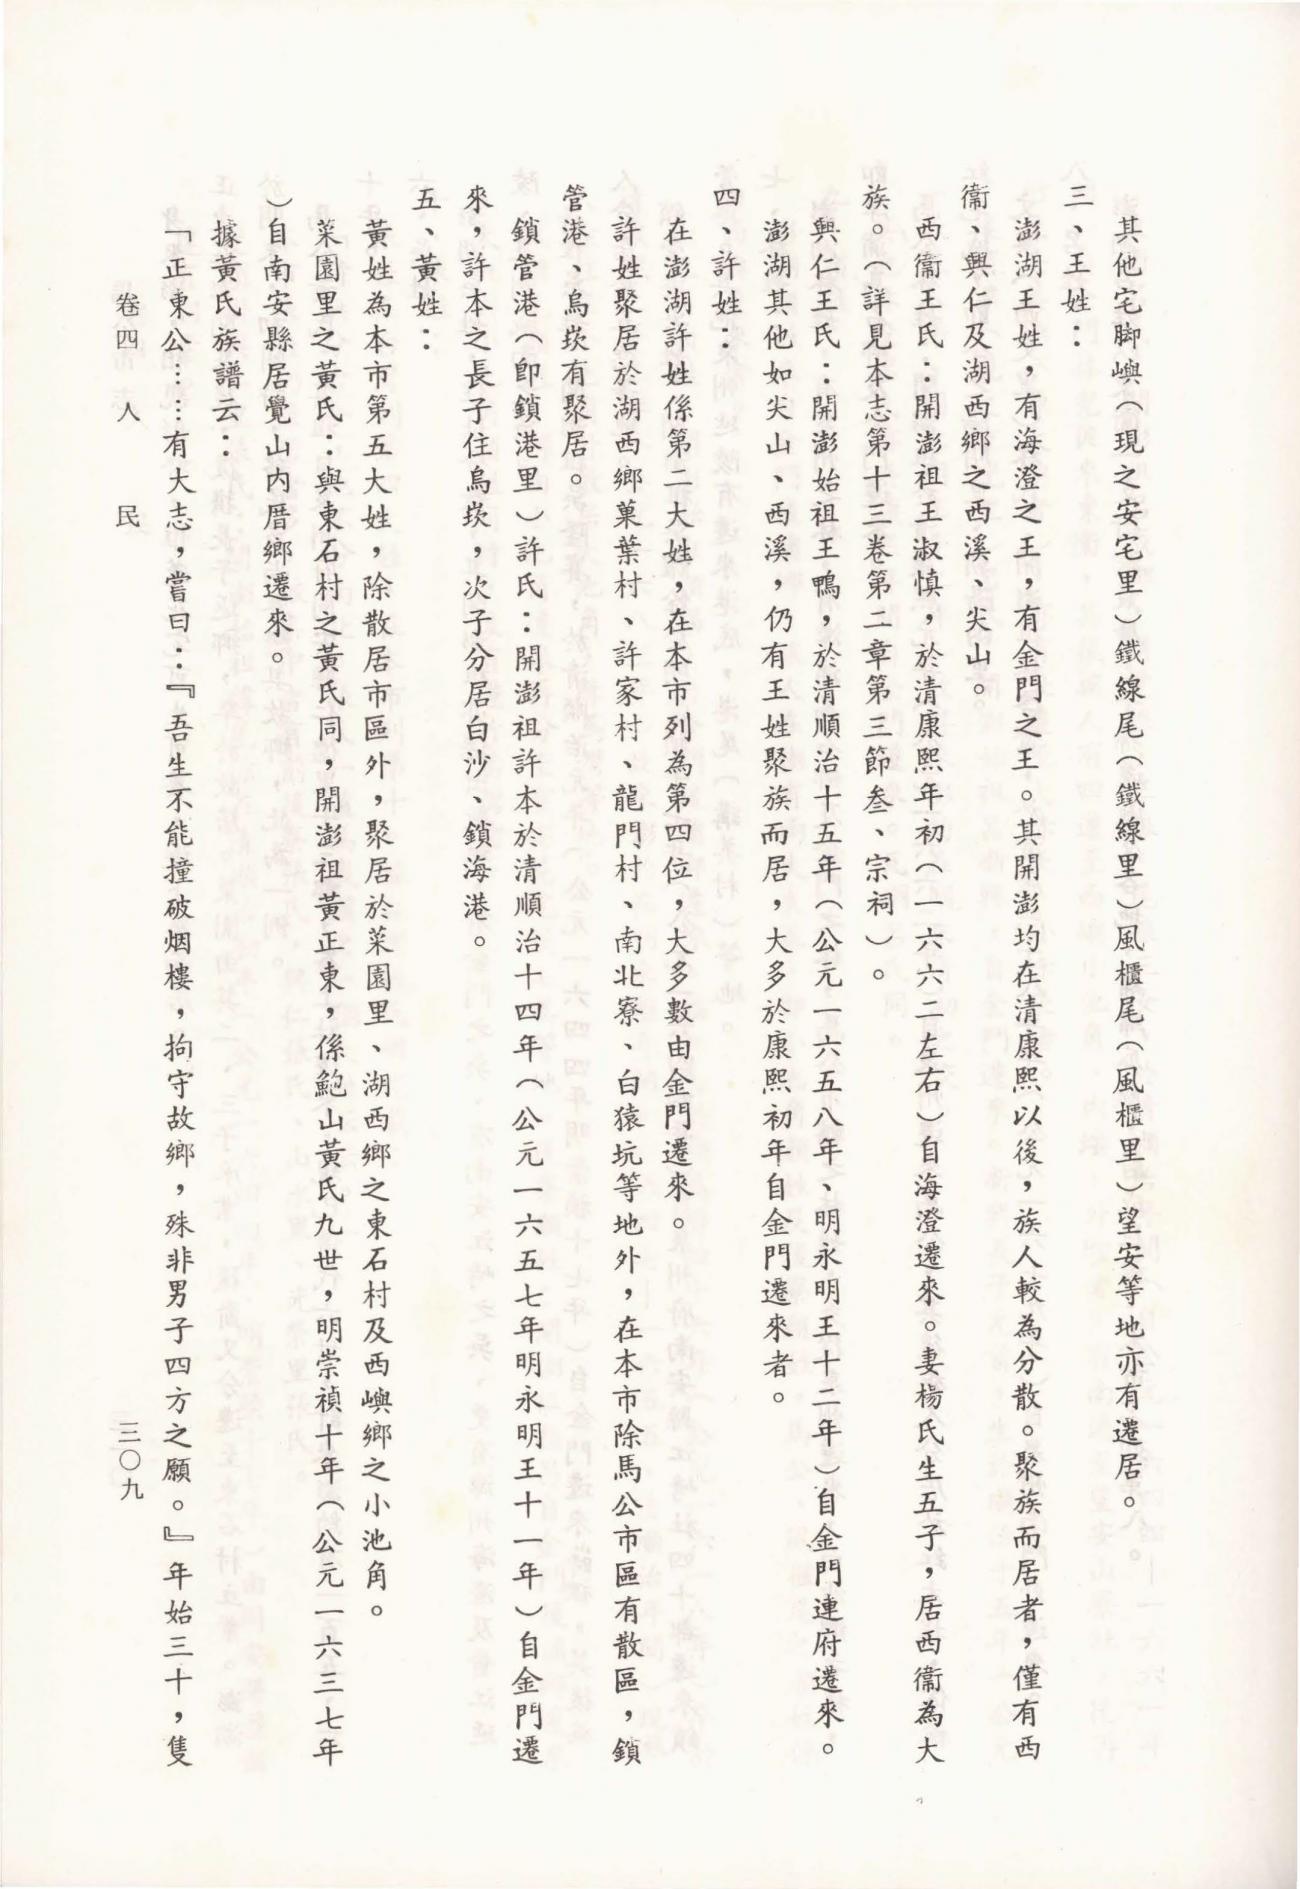 其他宅脚嶼（現之安宅里）鐵線尾（鐵線里）風櫃尾（風櫃里）望安等地亦有遷居。
三、王姓：
澎湖王姓，有海澄之王，有金門之王。其開澎均在清康熙以後，族人較為分散。聚族而居者，僅有西
衞、興仁及湖西鄉之西溪、尖山。
西衞王氏：開澎祖王淑慎，於清康熙年初（一六六二左右）自海澄遷來。妻楊氏生五子，居西衞為大
族。（詳見本志第十三卷第二章第三節叁、宗祠）。
興仁王氏：開澎始祖王鴨，於清順治十五年（公元一六五八年、明永明王十二年）自金門連府遷來。
澎湖其他如尖山、西溪，仍有王姓聚族而居，大多於康熙初年自金門遷來者。
四、許姓：
在澎湖許姓係第二大姓，在本市列為第四位，大多數由金門遷來。
許姓聚居於湖西鄉菓葉村、許家村、龍門村、南北寮、白猿坑等地外，在本市除馬公市區有散區，鎖
管港、烏崁有聚居。
鎖管港（卽鎖港里）許氏：開澎祖許本於清順治十四年（公元一六五七年明永明王十一年）自金門遷
來，許本之長子住烏崁，次子分居白沙、鎖海港。
五、黃姓：
黃姓為本市第五大姓，除散居市區外，聚居於菜園里、湖西鄉之東石村及西嶼鄉之小池角。
菜園里之黃氏：與東石村之黃氏同，開澎祖黃正東，係鮑山黃氏九世，明崇禎十年（公元一六三七年
）自南安縣居覺山內厝鄉遷來。
據黃氏族譜云：
「正東公……有大志，嘗曰：『吾生不能撞破烟樓，拘守故鄉，殊非男子四方之願。』年始三十，隻
卷四　人　民
三〇九